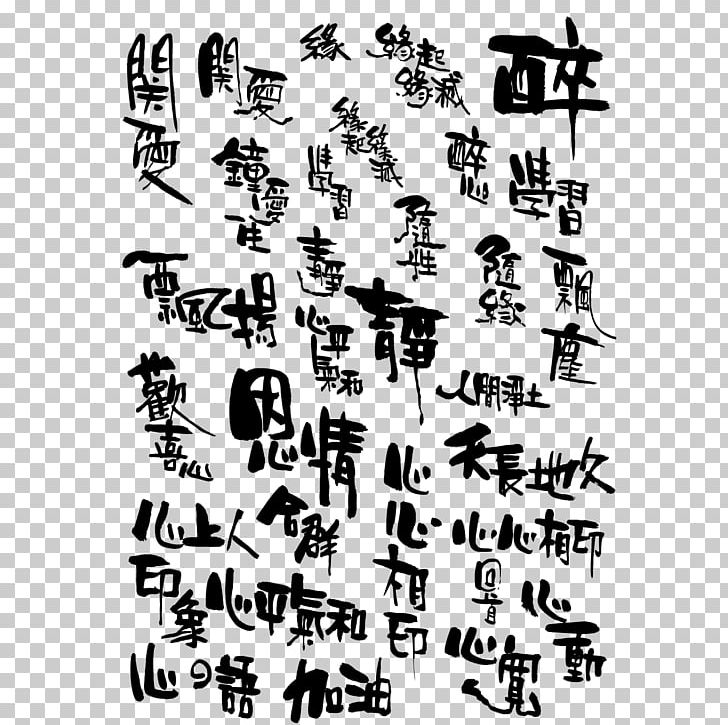 關愛
關愛
緣
緣起緣滅
醉
緣起緣滅
鐘愛
學習
醉心
學習
隨性
飄揚
靜
心平氣和
靜
隨緣
飄
歡喜心
恩情
人間淨土
天長地久
心心相印
心上人
合群
心心相印
印象
心平氣和
回首
心動
心的語
加油
心寬